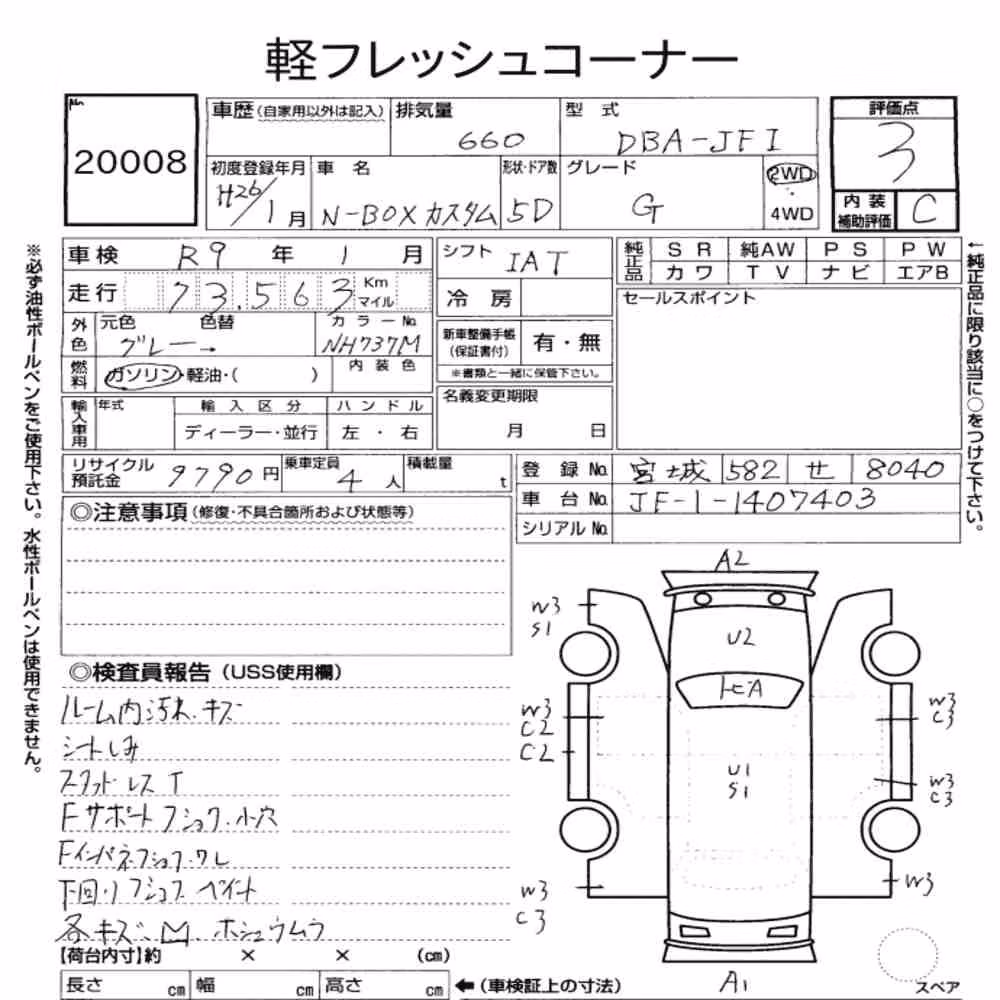 軽フレッシュコーナー
No. 20008
車歴（自家用以外は記入） 排気量 660 型式 DBA-JF1
評価点 3
内装補助評価 C
初度登録年月 H26/1月 車名 N-BOXカスタム 形状・ドア数 5D グレード G 2WD 4WD
車検 R9年1月 シフト IAT
純正品 SR 純AW PS PW
カワ TV ナビ エアB
走行 73,563 Km マイル 冷房
セールスポイント
外色 元色 グレー→ 色替 カラーNo. NH737M
新車整備手帳（保証書付） 有・無
※書類と一緒に保管下さい。
燃料 ガソリン・軽油・（ ） 内装色
名義変更期限 月 日
輸入車用 年式 輸入区分 ハンドル
ディーラー・並行 左・右
リサイクル預託金 9790円 乗車定員 4人 積載量 t
登録No. 宮城 582 せ 8040
車台No. JF-1-1407403
シリアルNo.
◎注意事項（修復・不具合箇所および状態等）
※必ず油性ボールペンをご使用下さい。水性ボールペンは使用できません。
←純正品に限り該当に○をつけて下さい。
◎検査員報告（USS使用欄）
ルーム内汚れ.キズ
シートしみ
スタッドレスT
Fサポートフショク.小穴
Fインパネフショク.ワレ
下回りフショク ペイント
各キズ.凹.ホシュウムラ
A2
W3
S1
U2
トビA
W3
C2
C2
W3
C3
U1
S1
W3
C3
W3
C3
W3
A1
スペア
【荷台内寸】約 × × （cm）
長さ cm 幅 cm 高さ cm ←（車検証上の寸法）